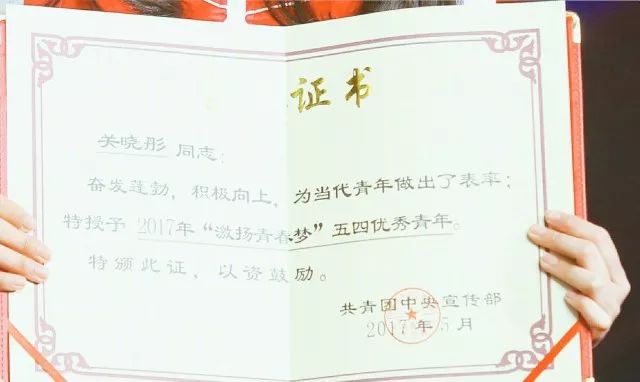 证书
关晓彤 同志：
奋发蓬勃，积极向上，为当代青年做出了表率；
特授予 2017年“激扬青春梦”五四优秀青年。
特颁此证，以资鼓励。
共青团中央宣传部
2017年5月